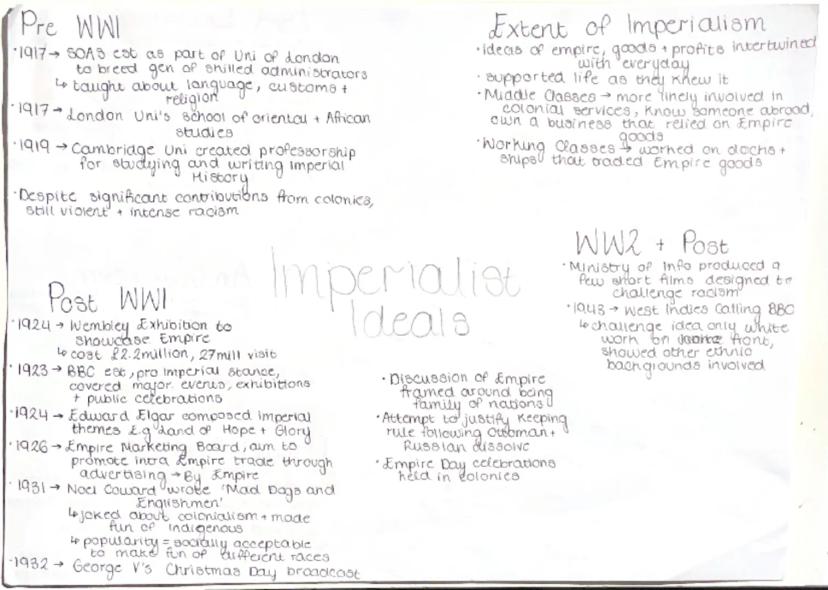 Pre WW1
·1917→ SOAS est as part of Uni of London
to breed gen of skilled administrators
↳ taught about language, customs +
religion
·1917→ London Uni's school of oriental + African
studies
·1919→ Cambridge Uni created professorship
for studying and writing Imperial
History
·Despite significant contributions from colonies,
still violent + intense racism
Extent of Imperialism
·ideas of empire, goods + profits intertwined
with everyday
·supported life as they knew it
·Middle Classes→ more likely involved in
colonial services, know someone abroad,
own a business that relied on Empire
goods
·Working Classes→ worked on docks +
ships that traded Empire goods
Imperialist
Ideals
WW2 + Post
·Ministry of Info produced a
few short films designed to
challenge racism
·1943→ West Indies Calling BBC
↳ challenge idea only white
work on front,
showed other ethnic
backgrounds involved
Post WW1
·1924→ Wembley Exhibition to
showcase Empire
↳ cost £2.2million, 27mill visit
·1923→ BBC est, pro Imperial stance,
covered major events, exhibitions
+ public celebrations
·1924→ Edward Elgar composed imperial
themes E.g 'Land of Hope + Glory
·1926→ Empire Marketing Board, aim to
promote intra Empire trade through
advertising → By Empire
·1931→ Noel Coward wrote 'Mad Dogs and
Englishmen'
↳ joked about colonialism + made
fun of indigenous
↳ popularity = socially acceptable
to make fun of different races
·1932→ George V's Christmas Day broadcast
·Discussion of Empire
framed around being
family of nations
·Attempt to justify keeping
rule following Ottoman +
Russian dissolve
·Empire Day celebrations
held in colonies